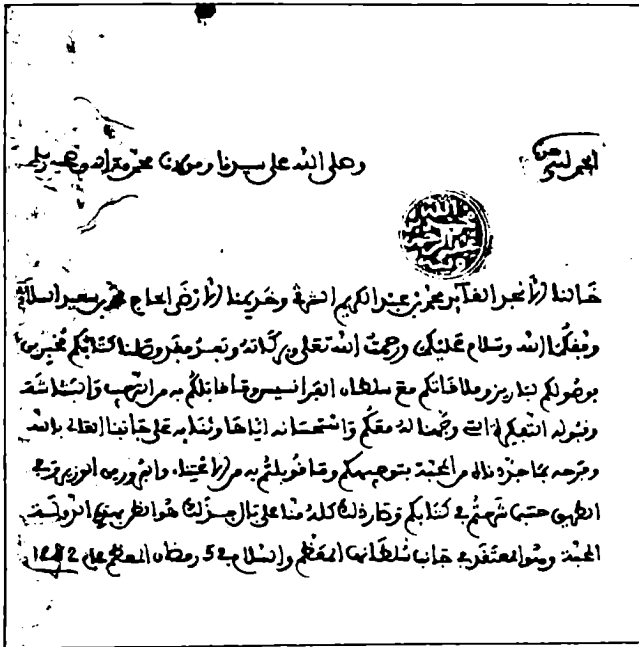 الحمد لله وحده وصلى الله على سيدنا ومولانا محمد وءاله وصحبه وسلم
خالنا الأنجد القائد محمد بن عبد الكريم الشرقي وخديمنا الأرضى الحاج محمد بن سعيد السلاوي
وفقكم الله وسلام عليكم ورحمت الله تعلى وبركاته وبعد فقد وصلنا كتابكم مخبرين
بوصولكم لباريز وملاقاتكم مع سلطان الفرانسيس وما قابلكم به من الترحيب والبشاشة
وقبوله التي وجهنا له معكم واستحسانه اياها وثنائه على جانبنا العالي بالله
وفرحه بما من المحبة بتوجيهكم وما قوبلتم به من الوزير
حسبما شرحتم في كتابكم وصار ذلك كله منا على بال
المحبة وهو المعتقد في جانب سلطانهم المعظم والسلام في 5 رمضان المعظم عام 1282